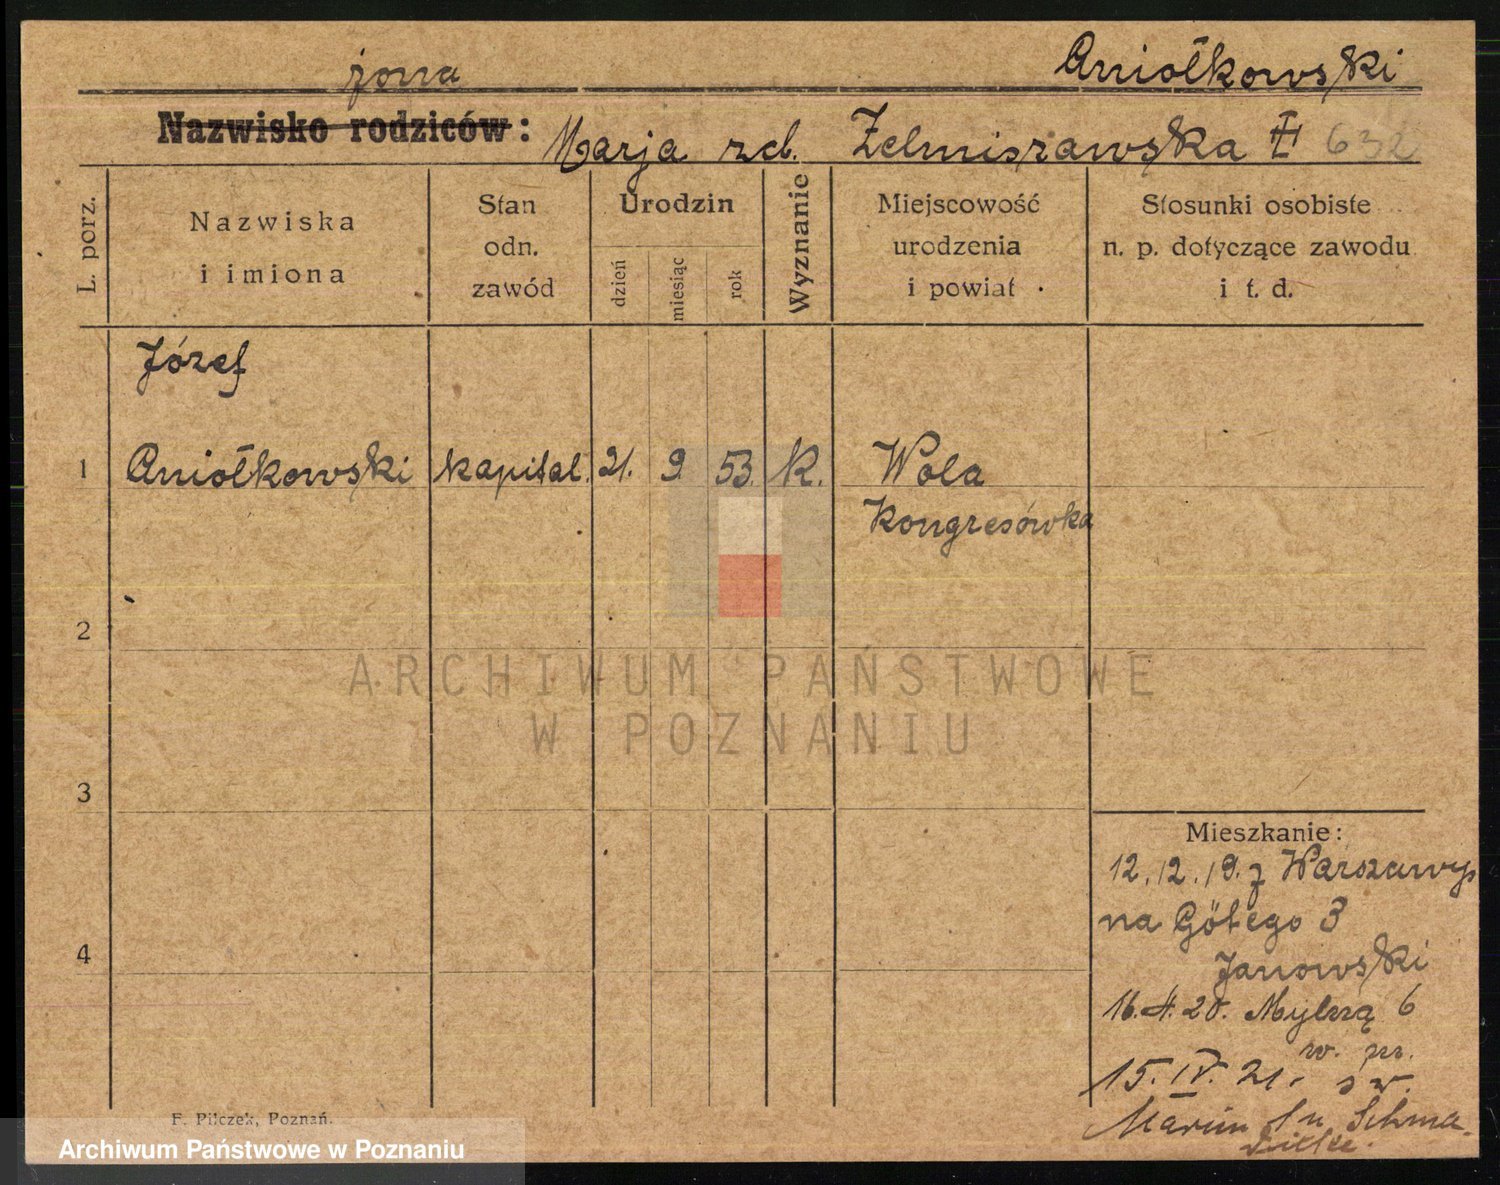 żona Aniołkowski
Nazwisko rodziców: Marja zd. Zelmiszawska 632
L. porz.
Nazwiska i imiona
Stan odn. zawód
Urodzin
dzień
miesiąc
rok
Wyznanie
Miejscowość urodzenia i powiat
Stosunki osobiste n. p. dotyczące zawodu i t. d.
Józef
1 Aniołkowski kapital. 21. 9. 53. K. Wola
Kongresówka
2
ARCHIWUM PAŃSTWOWE
W POZNANIU
3
Mieszkanie:
12.12.19. z Warszawy
na Götego 3
Janowski
4
16. 4. 20. Mylną 6
w. m.
15. IV. 21. św
Marcin
F. Pilczek, Poznań.
Archiwum Państwowe w Poznaniu